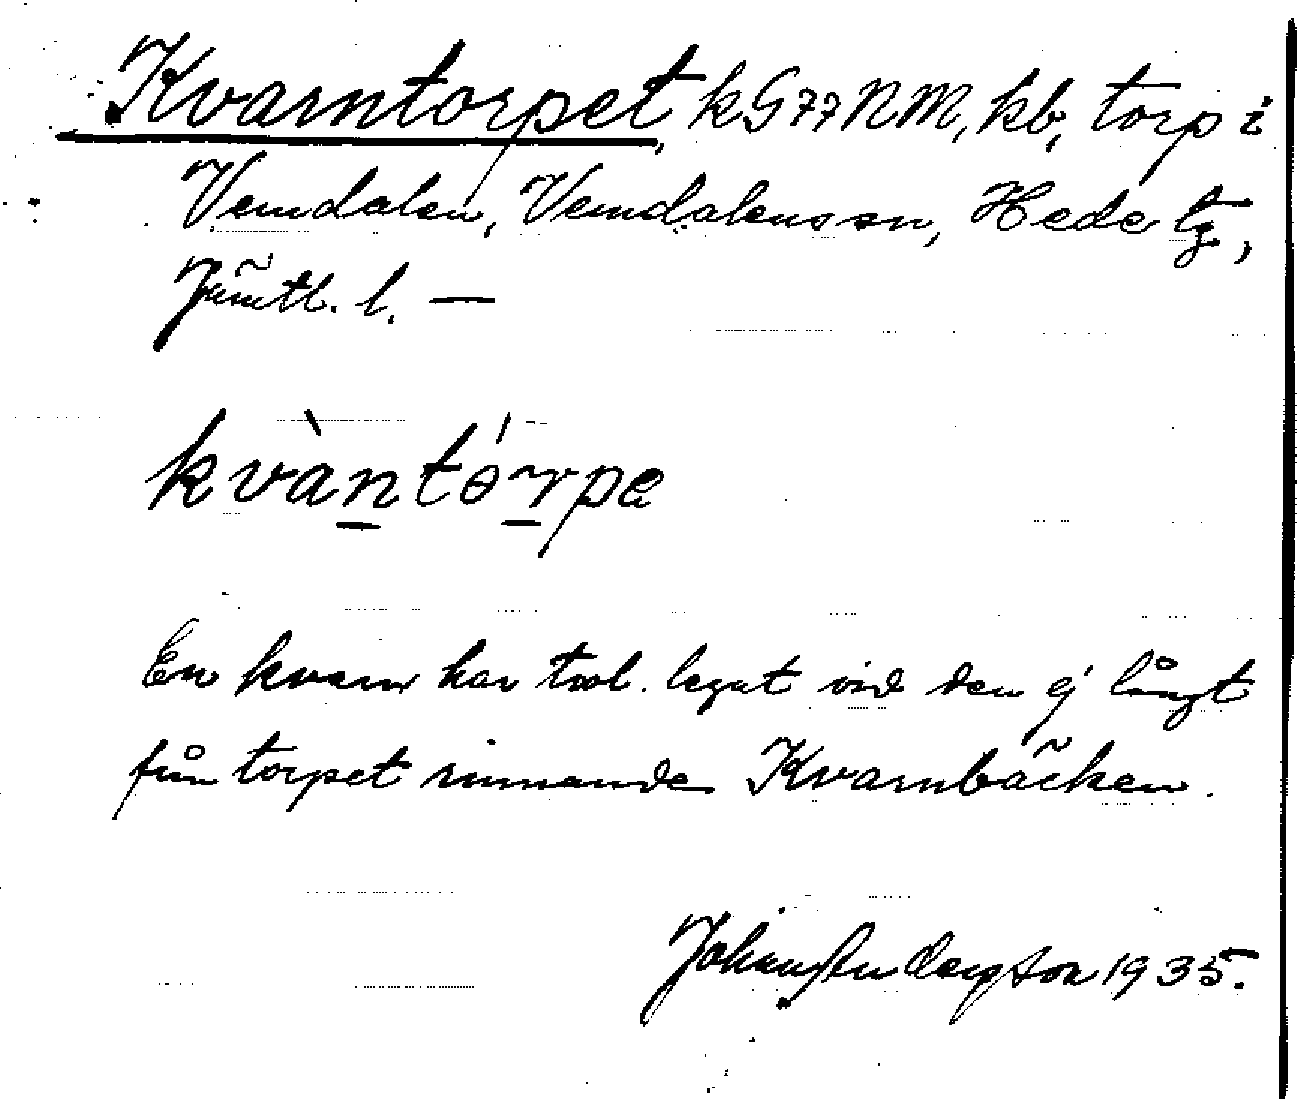 Kvarntorpet, kG77NM, kb, torp i
Vemdalen, Vemdalens sn, Hede tg,
Jämtl. l. —
kvàntórpe
En kvarn har trol. legat vid den ej långt
från torpet rinnande Kvarnbäcken.
Johan Anderson 1935.